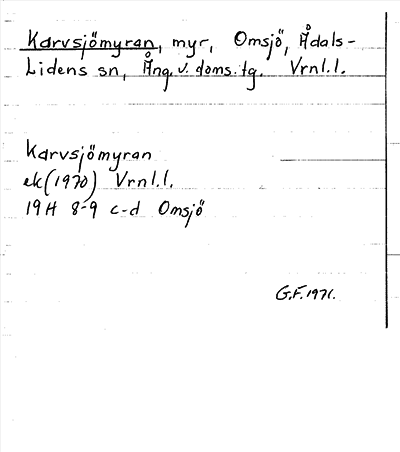 Karvsjömyran, myr, Omsjö, Ådals-
Lidens sn, Ång. v. doms. tg. Vrnl.l.
Karvsjömyran
ek (1970) Vrnl.l.
19H 8-9 c-d Omsjö
G.F. 1971.